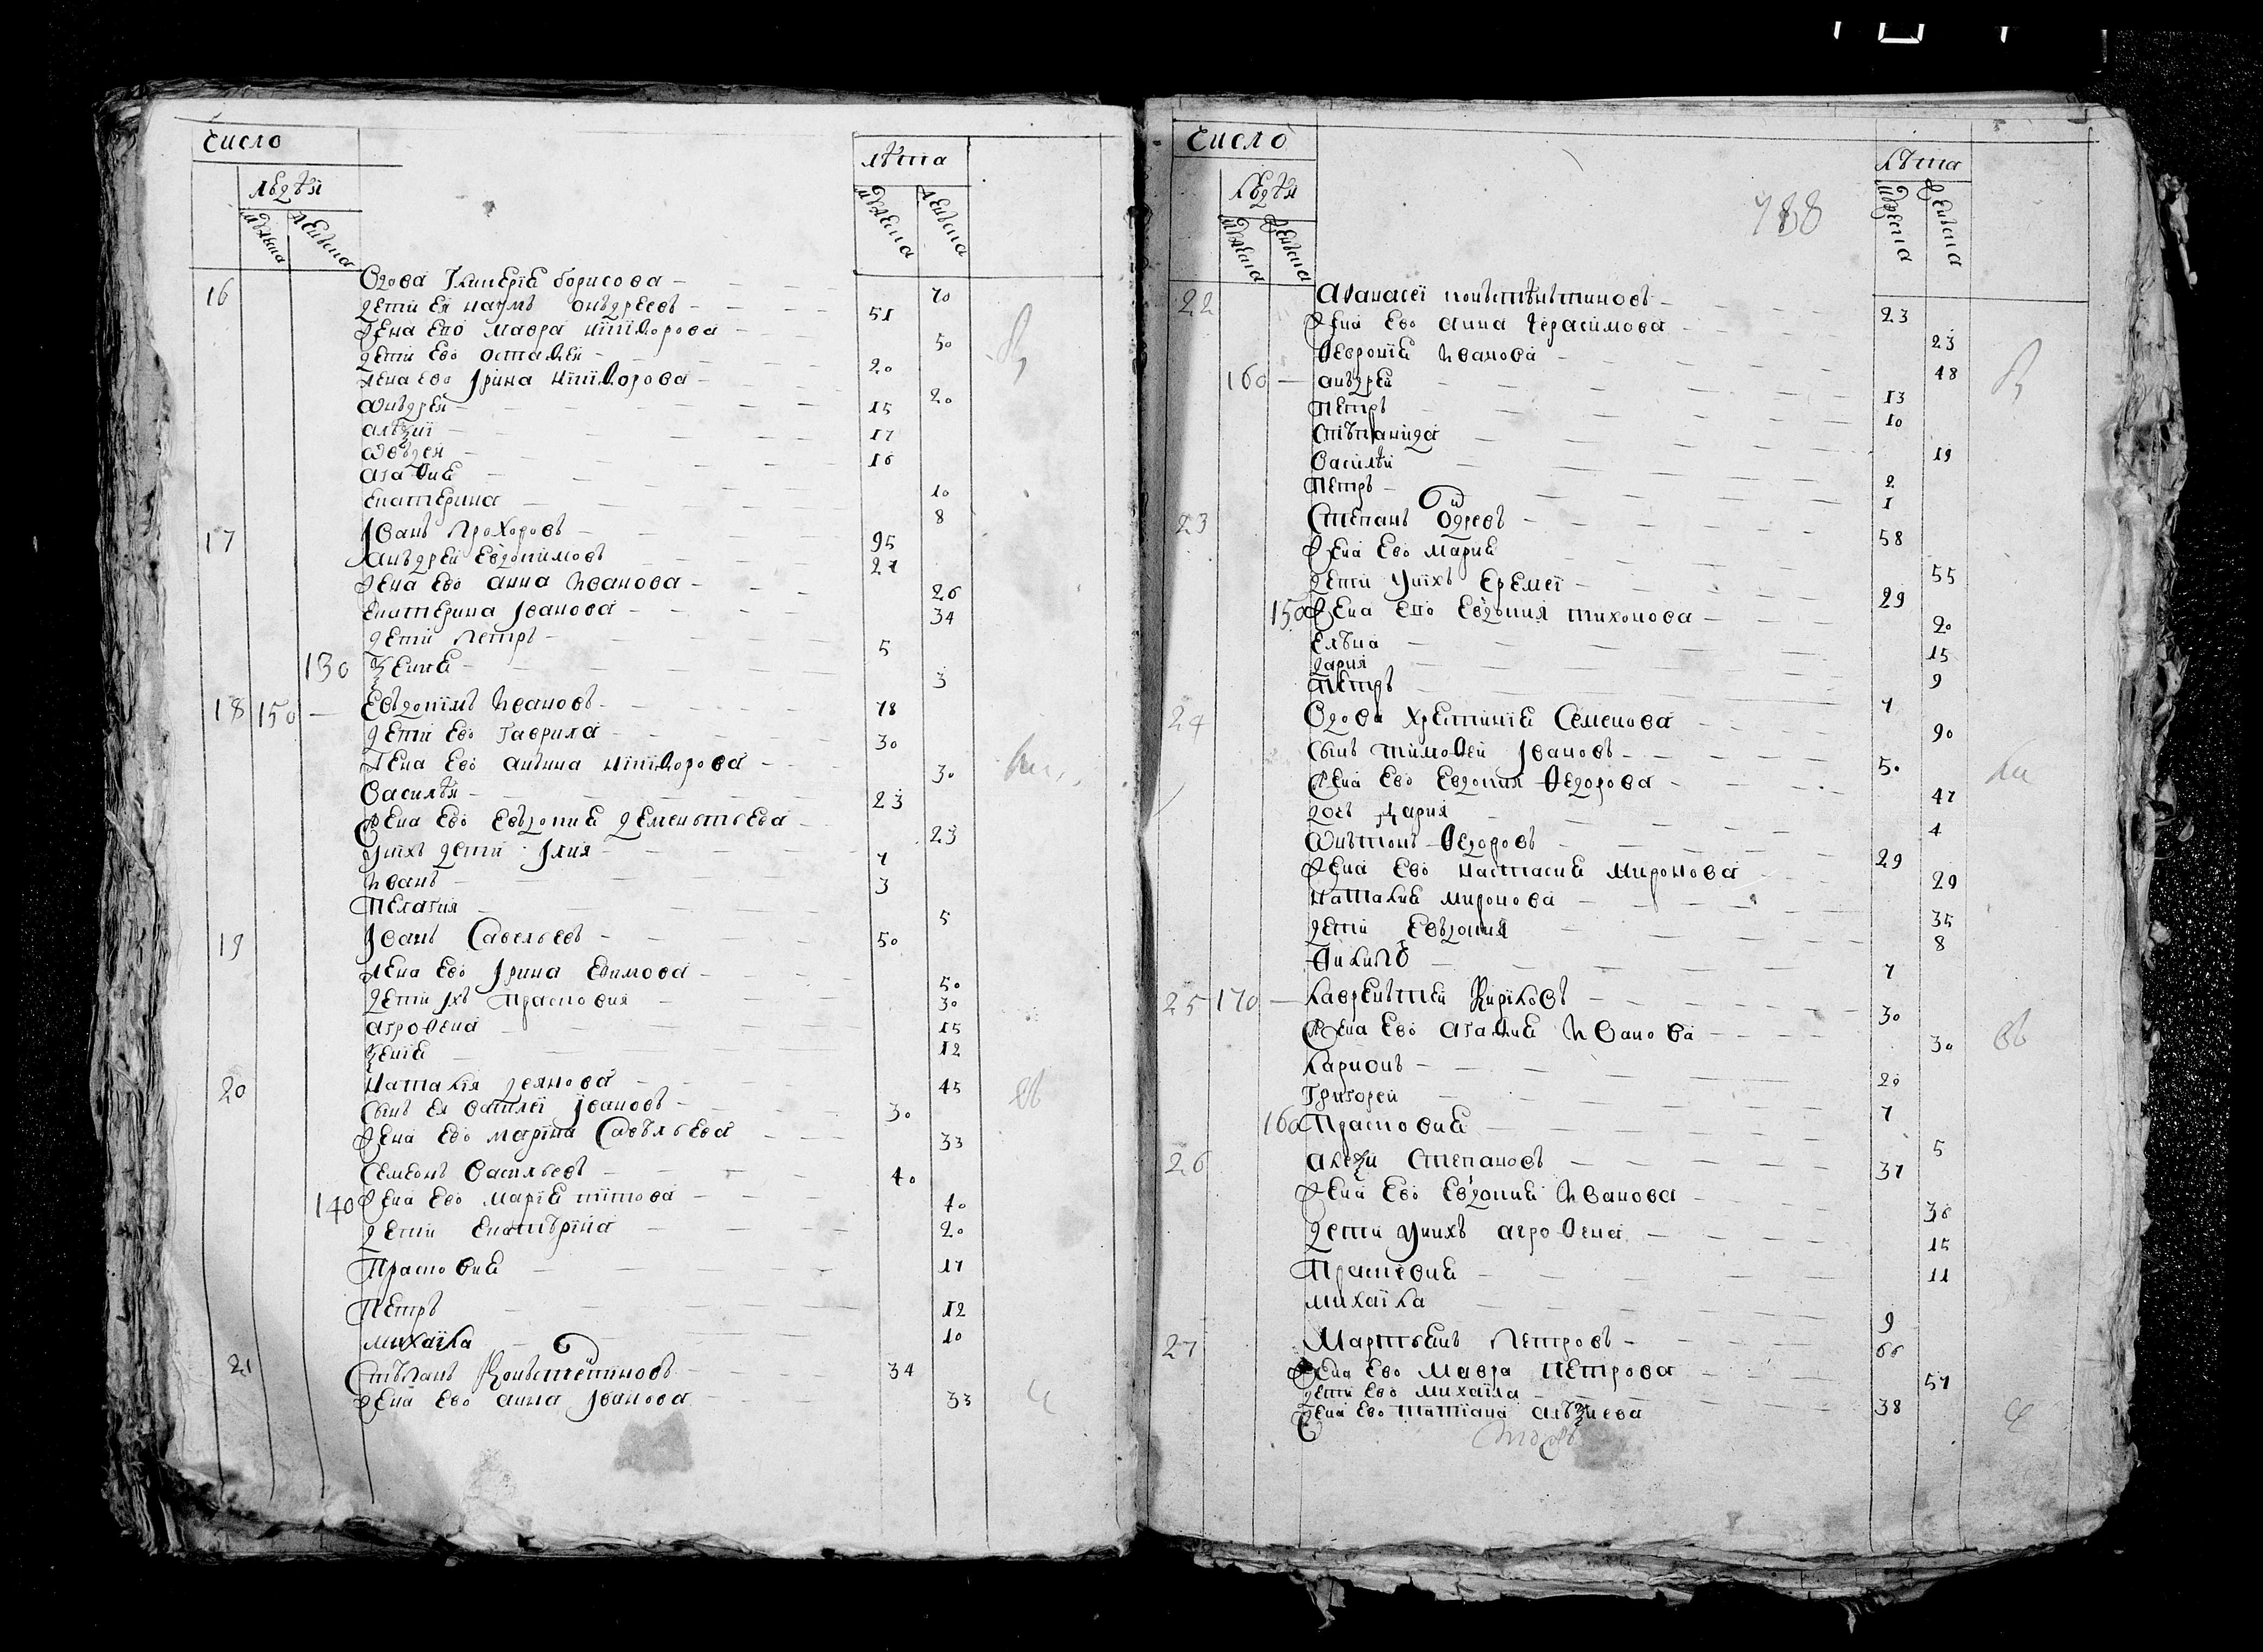 Число
людѣй
мужеска
женска
лѣта
мужеска
женска
16 Вдова Гликерїа борисова 70
дети ея наумъ андреевъ 51
Жена его мавра никифорова 50
дети ево остафей 20
жена ево Ірина никифорова 20
андрей 15
17
авдей 16
агафиа 10
екатерина 8
17 Іванъ Прохоровъ 95
андрей Евдокимовъ 27
Жена ево анна иванова 26
екатерина Іванова 34
дети петръ 5
130 3
18 150 Евдокимъ ивановъ 78
дети ево гаврила 30
Жена ево никифорова 30
Василѣй 23
Жена ево евдокиа дементьева 23
Унихъ дети Илия 7
иванъ 3
Пелагия 5
19 Іванъ Савельевъ 50
жена ево Ірина ефимова 50
дети Ихъ Прасковия 30
агрофена 15
12
20 Наталия 45
Сынъ ея Василеі Івановъ 30
Жена ево марїна Савѣльева 33
Семенъ Васильевъ 40
140 Жена ево марїа титова 40
дети екатѣрина 20
Прасковиа 17
Петръ 12
михаїла 10
21 Стѣпанъ Констентиновъ 34
Жена ево анна Іванова 33
Число
людѣй
мужеска
женска
788
лѣта
мужеска
женска
22 Афанасеі конъстѣнътиновъ 23
Жена Ево анна герасимова 23
Феврониа иванова 48
160 андрей 13
Петръ 10
Стѣпанида 19
Василѣй 2
Петръ 1
23 Степанъ 58
Жена Ево мариа 55
дети Унихъ Еремеі 29
150 Жена его Евдокия тихонова 20
Елѣна 15
дария 9
Петръ 7
24 Вдова Христиниа Семенова 90
Сынъ тимофей Івановъ 50
Жена Ево Евдокия Федорова 47
дочь Дария 4
Антонъ Федоровъ 29
Жена Ево настасиа миронова 29
наталиа миронова 35
дети Евдокия 8
Филипъ 7
25 170 лаврентей Кириловъ 30
Жена Ево агафиа иванова 30
ларионъ 20
Григорей 7
160 Прасковиа 5
26 алеѯи Степановъ 37
Жена Ево Евдокиа иванова 36
дети Унихъ агрофена 15
Прасковиа 11
михаїла 9
27 Мартынъ Петровъ 66
Жена Ево Мавра Петрова 57
дети Ево михаїла 38
Жена Ево татїана алѣѯиева